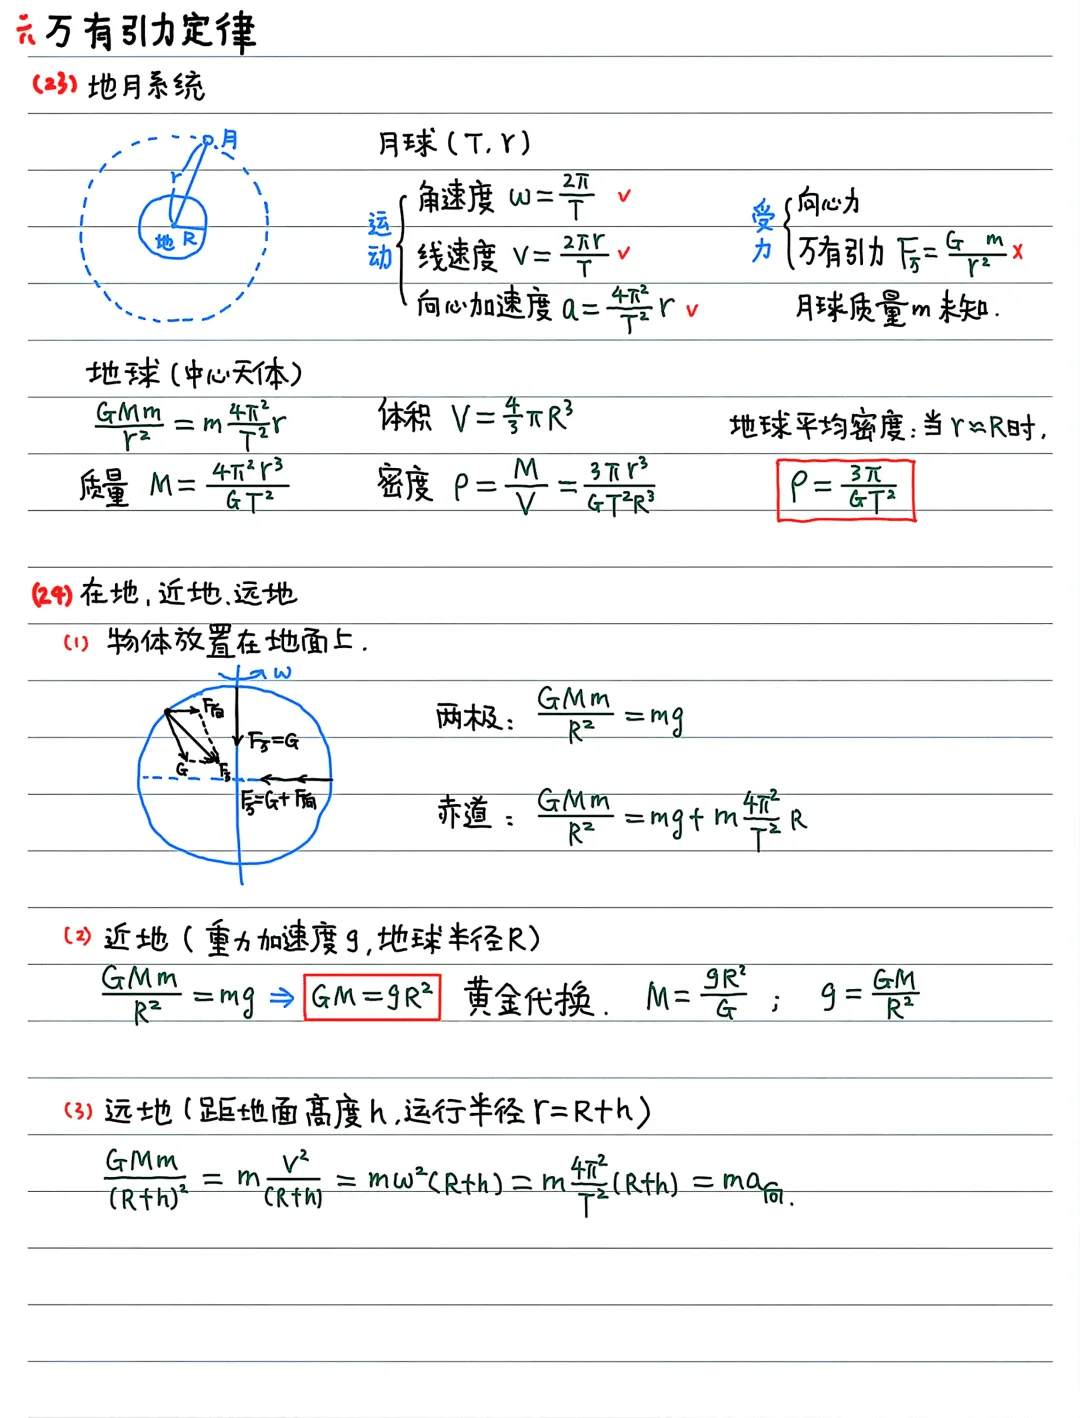 六 万有引力定律
(23) 地月系统
月
r
地 R
月球(T, r)
运动
角速度 ω=2π/T ✓
线速度 V=2πr/T ✓
向心加速度 a=4π²/T² r ✓
受力
向心力
万有引力 F万=G m/r² ×
月球质量m未知.
地球(中心天体)
GMm/r² = m 4π²/T² r
体积 V=4/3 πR³
地球平均密度:当r≈R时,
质量 M=4π²r³/GT²
密度 ρ=M/V=3πr³/GT²R³
ρ=3π/GT²
(24) 在地,近地、远地
(1) 物体放置在地面上.
ω
F向
F万=G
G
F万
F万=G+F向
两极: GMm/R² = mg
赤道: GMm/R² = mg + m 4π²/T² R
(2) 近地(重力加速度g,地球半径R)
GMm/R² = mg ⇒ GM=gR² 黄金代换. M=gR²/G ; g=GM/R²
(3) 远地(距地面高度h,运行半径r=R+h)
GMm/(R+h)² = m V²/(R+h) = mω²(R+h) = m 4π²/T² (R+h) = ma向.